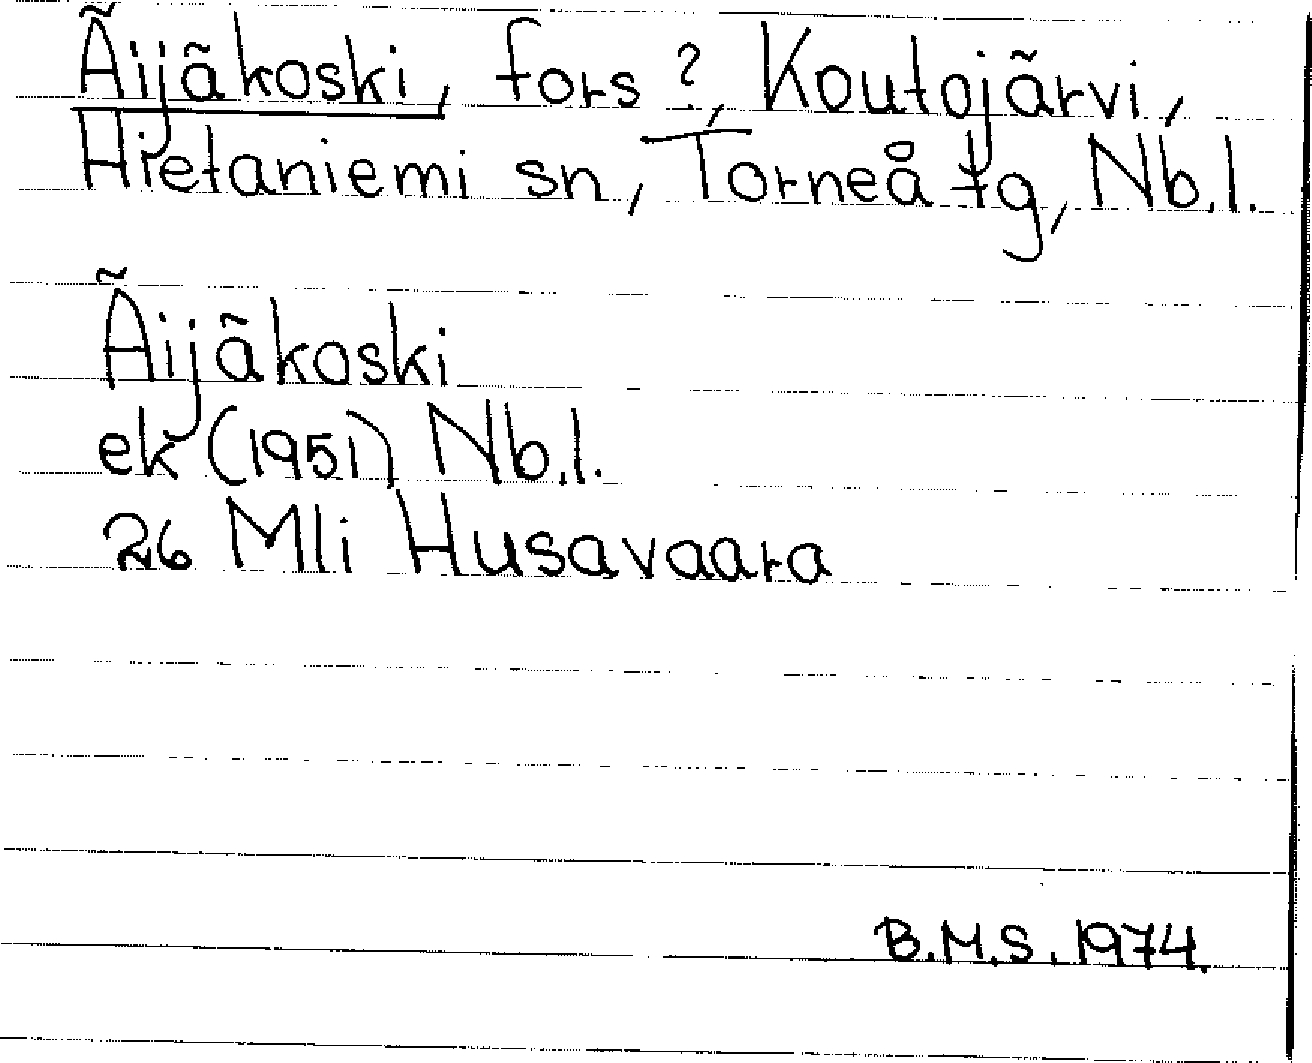 Äijäkoski, fors ?, Koutojärvi,
Hietaniemi sn, Torneå tg, Nb.l.
Äijäkoski
ek (1951) Nb.l.
26 Mli Husavaara
B.M.S. 1974.